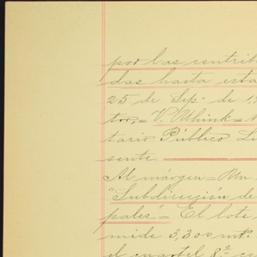 por las contrib
das hasta esta
25 de Sep. de 1,9
tor,= V. Uhink=
tario Público Li
sente.
Al márgen= Un
"Subdirección de
pales"= El lote
mide 3,300 mt.
el cuartel 8º